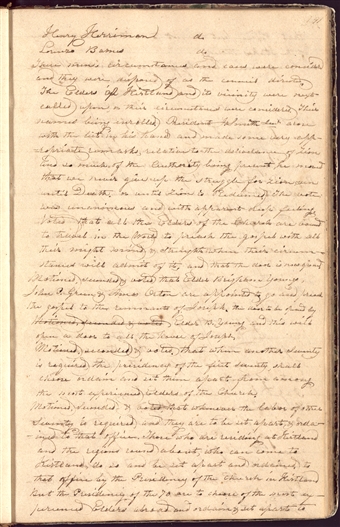 Henry Herriman do
Lorenzo Barnes do
These names circumstances and cases were considered
and they were disposed of as the council directed
The Elders of Kirtland and its vicinity were next
called upon or their circumstances were considered, their
names being enrolled. President J. Smith Junr arose
with the list in his hand and made some very app
ropriate remarks, relative to the deliverance of Zion
And so much of the Authority being present, he moved
that we never give up the struggle for Zion even
until Death, or until Zion is Redeemed. The vote
was unanimous and with apparent deep feeling
Voted, that all the Elders of the Church are bound
to travel in the world to preach the gospel with all
their might mind & strength when their circum-
stances will admit of it, and that the door is now opened
Motioned, seconded & voted, that Elders Brigham Young,
John P. Green, & Amos Orton are appointed to go and preach
the gospel to the remnants of Joseph, the door to be opened by
Motioned, seconded & voted, Elder B. Young and this will
open a door to all the house of Joseph,
Motioned, seconded & voted, that when another Seventy
is required, the presidency of the first seventy shall
choose ordain and set them apart from among
the most experienced Elders of the Church,
Motioned, Seconded & voted, that whenever the labor of other
Seventy is required, and they are to be set apart, & orda-
ined to that office, those who are residing at Kirtland
and the regions round about, who can come to
Kirtland, do so and be set apart and ordained to
that office by the Presidency of the Church in Kirtland
But the Presidency of the 70 are to choose of the most ex
perienced Elders abroad and ordain & set apart to